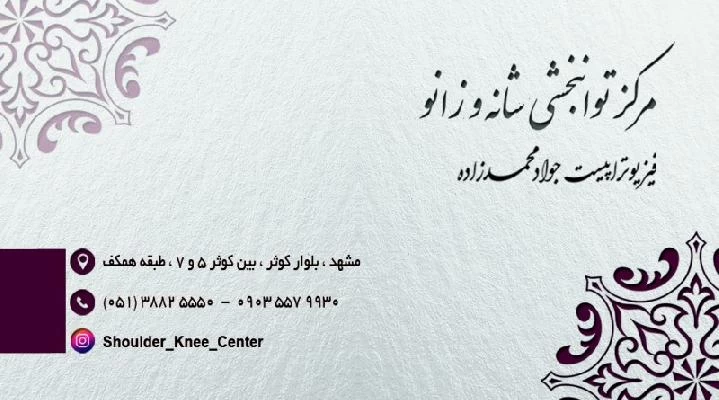 مرکز توانبخشی شانه و زانو
فیزیوتراپیست جواد محمدزاده
مشهد ، بلوار کوثر ، بین کوثر ۵ و ۷ ، طبقه همکف
(۰۵۱) ۳۸۸۲ ۵۵۵۰ – ۰۹۰۳ ۵۵۷ ۹۹۳۰
Shoulder_Knee_Center